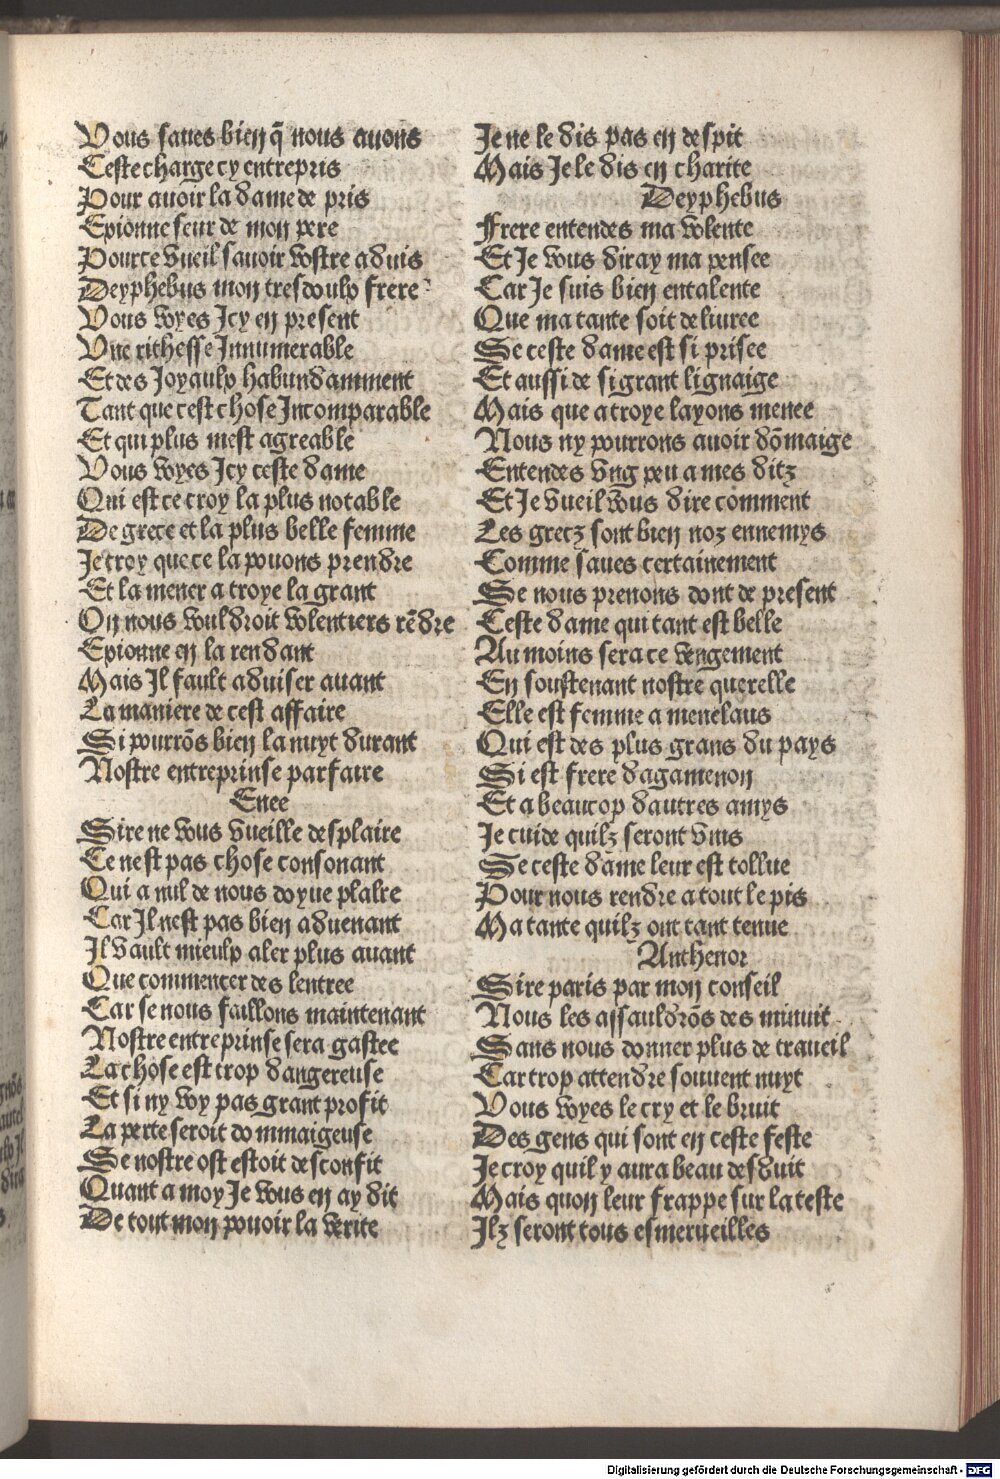 Vous saues bien q̃ nous auons
Ceste charge cy entrepris
Pour auoir la dame de pris
Epionne seur de mon pere
Pource vueil sauoir vostre aduis
Deyphebus mon tresdoulp frere
Vous voyes Icy en present
Vne rithesse Innumerable
Et des Joyaulp habundamment
Tant que cest chose Incomparable
Et qui plus mest agreable
Vous voyes Icy ceste dame
Qui est ce croy la plus notable
De grece et la plus belle femme
Je croy que ce la pouons prendre
Et la mener a troye la grant
On nous vouldroit volentiers rẽdre
Epionne en la rendant
Mais Il fault aduiser auant
La maniere de cest affaire
Si pourrõs bien la nuyt durant
Nostre entreprinse parfaire
Enee
Sire ne vous vueille desplaire
Ce nest pas chose consonant
Qui a nul de nous doyue plalre
Car Il nest pas bien aduenant
Il vault mieulp aler plus auant
Que commencer des lentree
Car se nous faillons maintenant
Nostre entreprinse sera gastee
La chose est trop dangereuse
Et si ny voy pas grant profit
La perte seroit dommaigeuse
Se nostre ost estoit desconfit
Quant a moy Je vous en ay dit
De tout mon pouoir la verite
Je ne le dis pas en despit
Mais Je le dis en charite
Deyphebus
Frere entendes ma volente
Et Je vous diray ma pensee
Car Je suis bien entalente
Que ma tante soit deliuree
Se ceste dame est si prisee
Et aussi de si grant lignaige
Mais que a troye layons menee
Nous ny pourrons auoir dõmaige
Entendes vng peu a mes ditz
Et Je vueil vous dire comment
Les grecz sont bien noz ennemys
Comme saues certainement
Se nous prenons dont de present
Ceste dame qui tant est belle
Au moins sera ce vengement
En soustenant nostre querelle
Elle est femme a menelaus
Qui est des plus grans du pays
Si est frere dagamenon
Et a beaucop dautres amys
Je cuide quilz seront vnis
Se ceste dame leur est tollue
Pour nous rendre a tout le pis
Ma tante quilz ont tant tenue
Anthenor
Sire paris par mon conseil
Nous les assauldrõs des minuit
Sans nous donner plus de traueil
Car trop attendre souuent nuyt
Vous voyes le cry et le bruit
Des gens qui sont en ceste feste
Je croy quil y aura beau desduit
Mais quon leur frappe sur la teste
Ilz seront tous esmerueilles
Digitalisierung gefördert durch die Deutsche Forschungsgemeinschaft - DFG